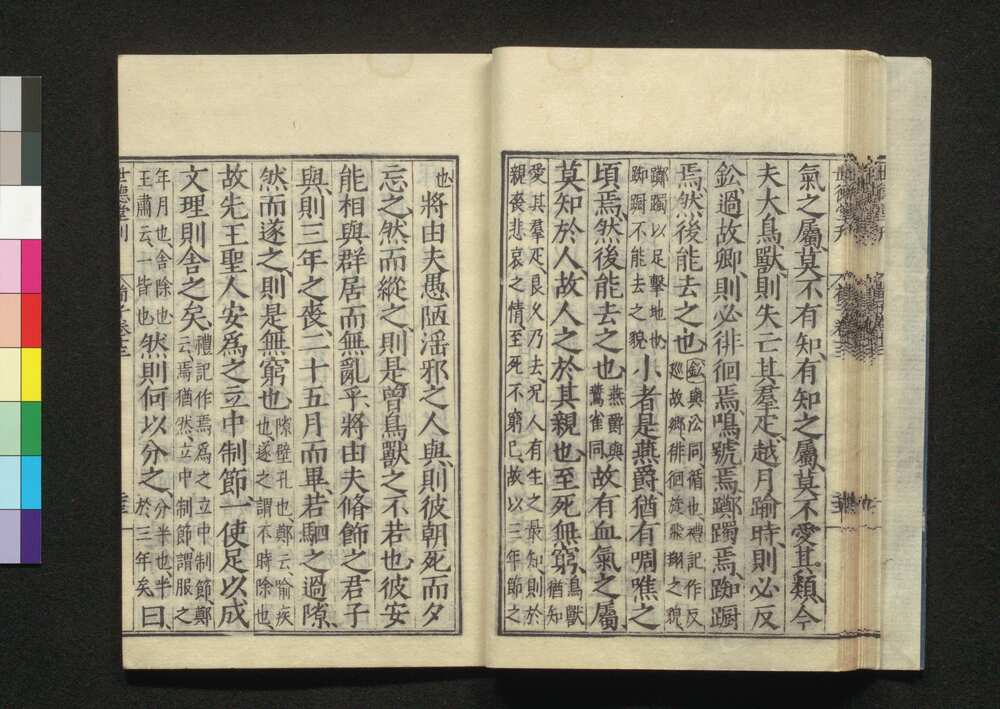 氣之屬莫不有知、有知之屬、莫不愛其類、今
夫大鳥獸則失亡其羣疋、越月踰時則必反
鈆、過故鄉、則必徘徊焉、鳴號焉、躑躅焉、踟𨅒
焉、然後能去之也、鈆與㳂同、循也、禮記作反廵故鄉徘徊旋飛翔之貌、
躑躅以足擊地也、踟𨅒不能去之貌小者是燕爵、猶有啁噍之
頃焉、然後能去之也、燕爵與鷰雀同故有血氣之屬
莫知於人、故人之於其親也、至死無窮、鳥獸猶知
愛其羣疋、良久乃去、況人有生之最知、則於
親喪悲哀之情、至死不窮已、故以三年節之
也、將由夫愚陋淫邪之人與、則彼朝死而夕
忘之、然而縱之、則是曾鳥獸之不若也、彼安
能相與群居而無亂乎、將由夫脩飾之君子
與、則三年之喪、二十五月而畢、若駟之過隙、
然而遂之、則是無窮也、隙壁孔也、鄭云喻疾也、遂之謂不時除也、
故先王聖人安爲之立中制節、一使足以成
文理則舍之矣、禮記作焉爲之立中制節鄭云、焉猶然、立中制節謂服之
年月也、舍除也、王肅云、一皆也、然則何以分之、分半也、半於三年矣曰、
世德堂刊
荀子卷十三